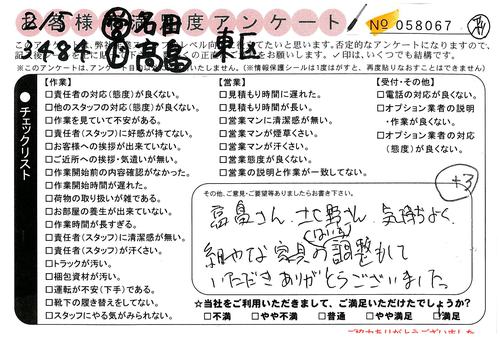 お客様満足度アンケート
№ 058067
2/5 名田
3484 高島 東区
記入後
※このアンケートは、
(※情報保護シールは1度がすと、再度貼りなおすことはできません)
チェックリスト
【作業】
□責任者の対応(態度)が良くない。
□他のスタッフの対応(態度)が良くない。
□作業を見ていて不安がある。
□責任者(スタッフ)に好感が持てない。
□お客様への挨拶が出来ていない。
□ご近所への挨拶・気遣いが無い。
□作業開始前の内容確認がなかった。
□作業開始時間が遅れた。
□荷物の取り扱いが雑である。
□お部屋の養生が出来ていない。
□作業時間が長すぎる。
□責任者(スタッフ)に清潔感が無い。
□責任者(スタッフ)が汗くさい。
□トラックが汚い。
□梱包資材が汚い。
□運転が不安(下手)である。
□靴下の履き替えをしてない。
□スタッフにやる気がみられない。
【営業】
□見積もり時間に遅れた。
□見積もり時間が長い。
□営業マンに清潔感が無い。
□営業マンが煙草くさい。
□営業マンが汗くさい。
□営業態度が良くない。
□営業の説明と作業が一致してない。
【受付・その他】
□電話の対応が良くない。
□オプション業者の説明
・作業が良くない。
□オプション業者の対応
(態度)が良くない。
+3
その他、ご意見・ご要望等ありましたらお書き下さい。
高島さん、北野さん、気持ちよく、
細やかな家具の調整もして
いただきありがとうございました。
☆当社をご利用いただきまして、ご満足いただけてしょうか?
□不満 □やや不満 □普通 □やや満足 ☑満足
ご協力ありがとうございました